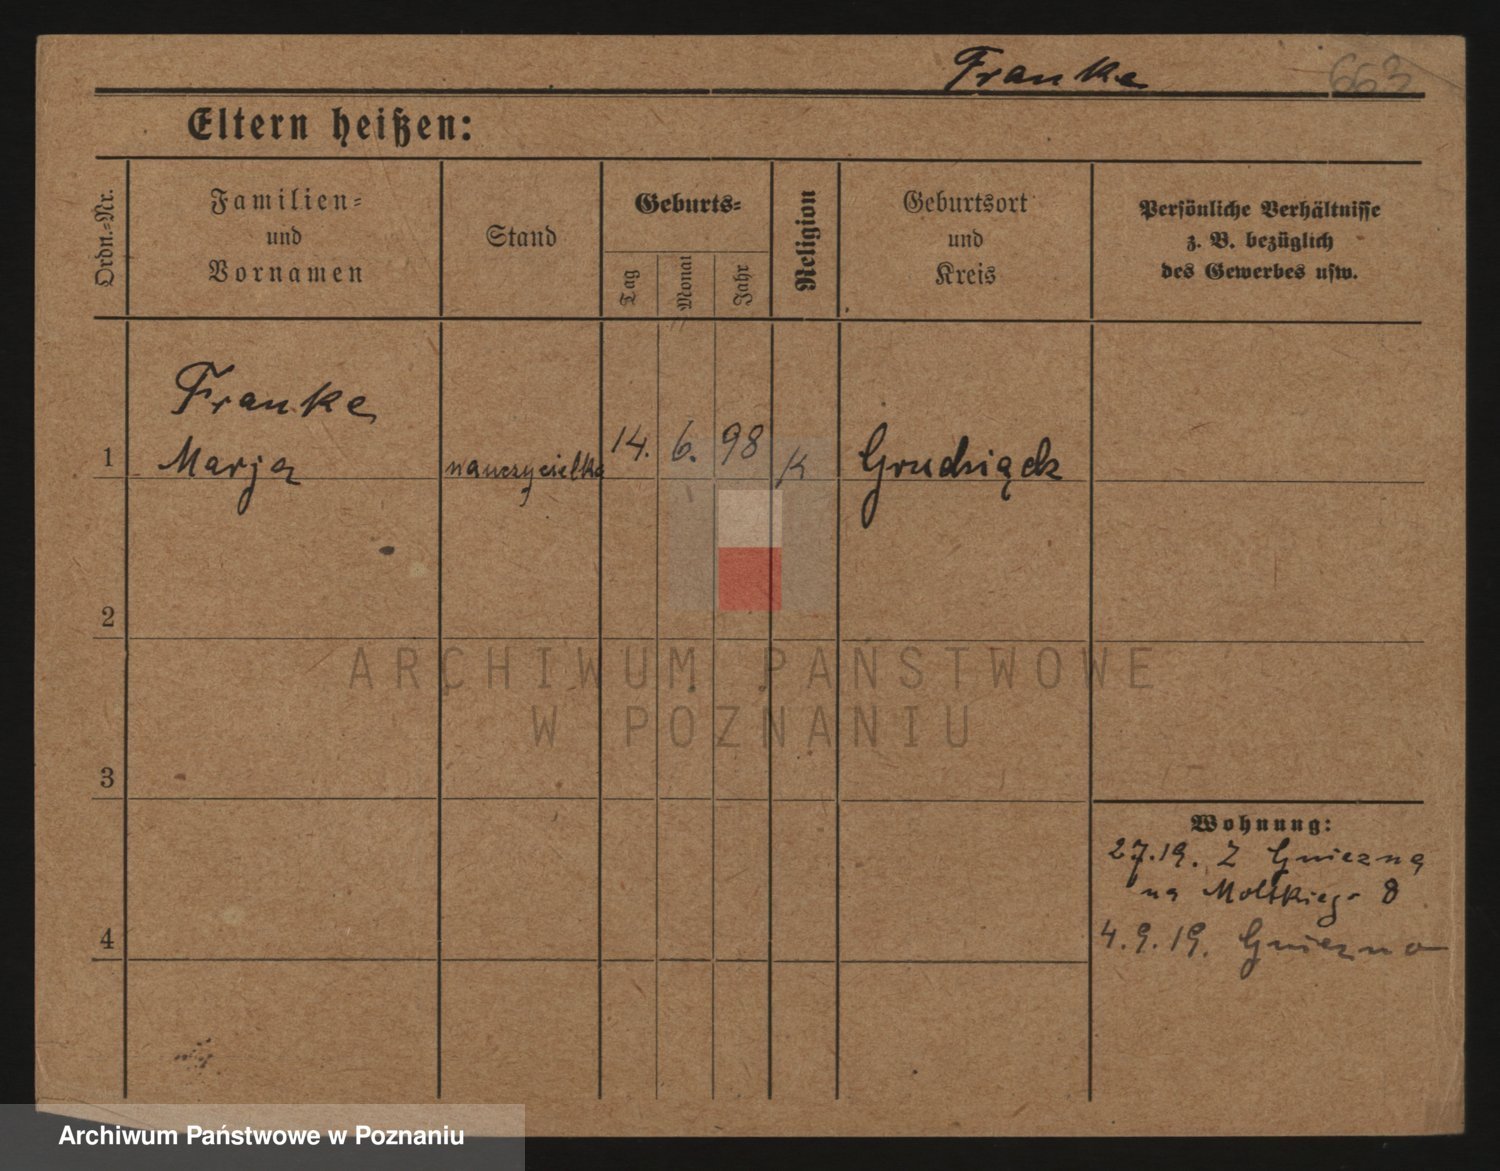 Franke 663
Eltern heißen:
Ordn.-Nr.
Familien-
und
Vornamen
Stand
Geburts-
Tag
Monat
Jahr
Religion
Geburtsort
und
Kreis
Persönliche Verhältnisse
z. B. bezüglich
des Gewerbes usw.
Franke
1 Marja nauczycielka 14. 6. 98 K Grudziądz
2
ARCHIWUM PAŃSTWOWE
W POZNANIU
3
Wohnung:
27.19. Z Gniezna
na Moltkiego 8
4 4.9.19. Gniezno
Archiwum Państwowe w Poznaniu